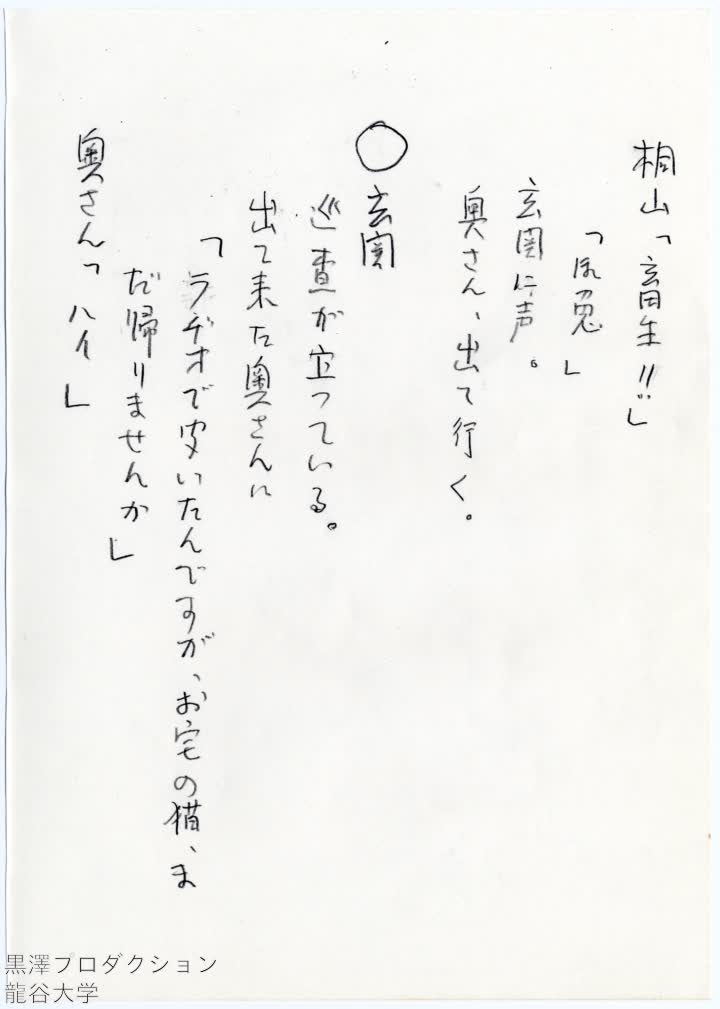 桐山「畜生!!」
「御免」
玄関に声。
奥さん、出て行く。
○玄関
巡査が立っている。
出て来た奥さんに
「ラヂオで聞いたんですが、お宅の猫、ま
だ帰りませんか」
奥さん「ハイ」
黒澤プロダクション
龍谷大学